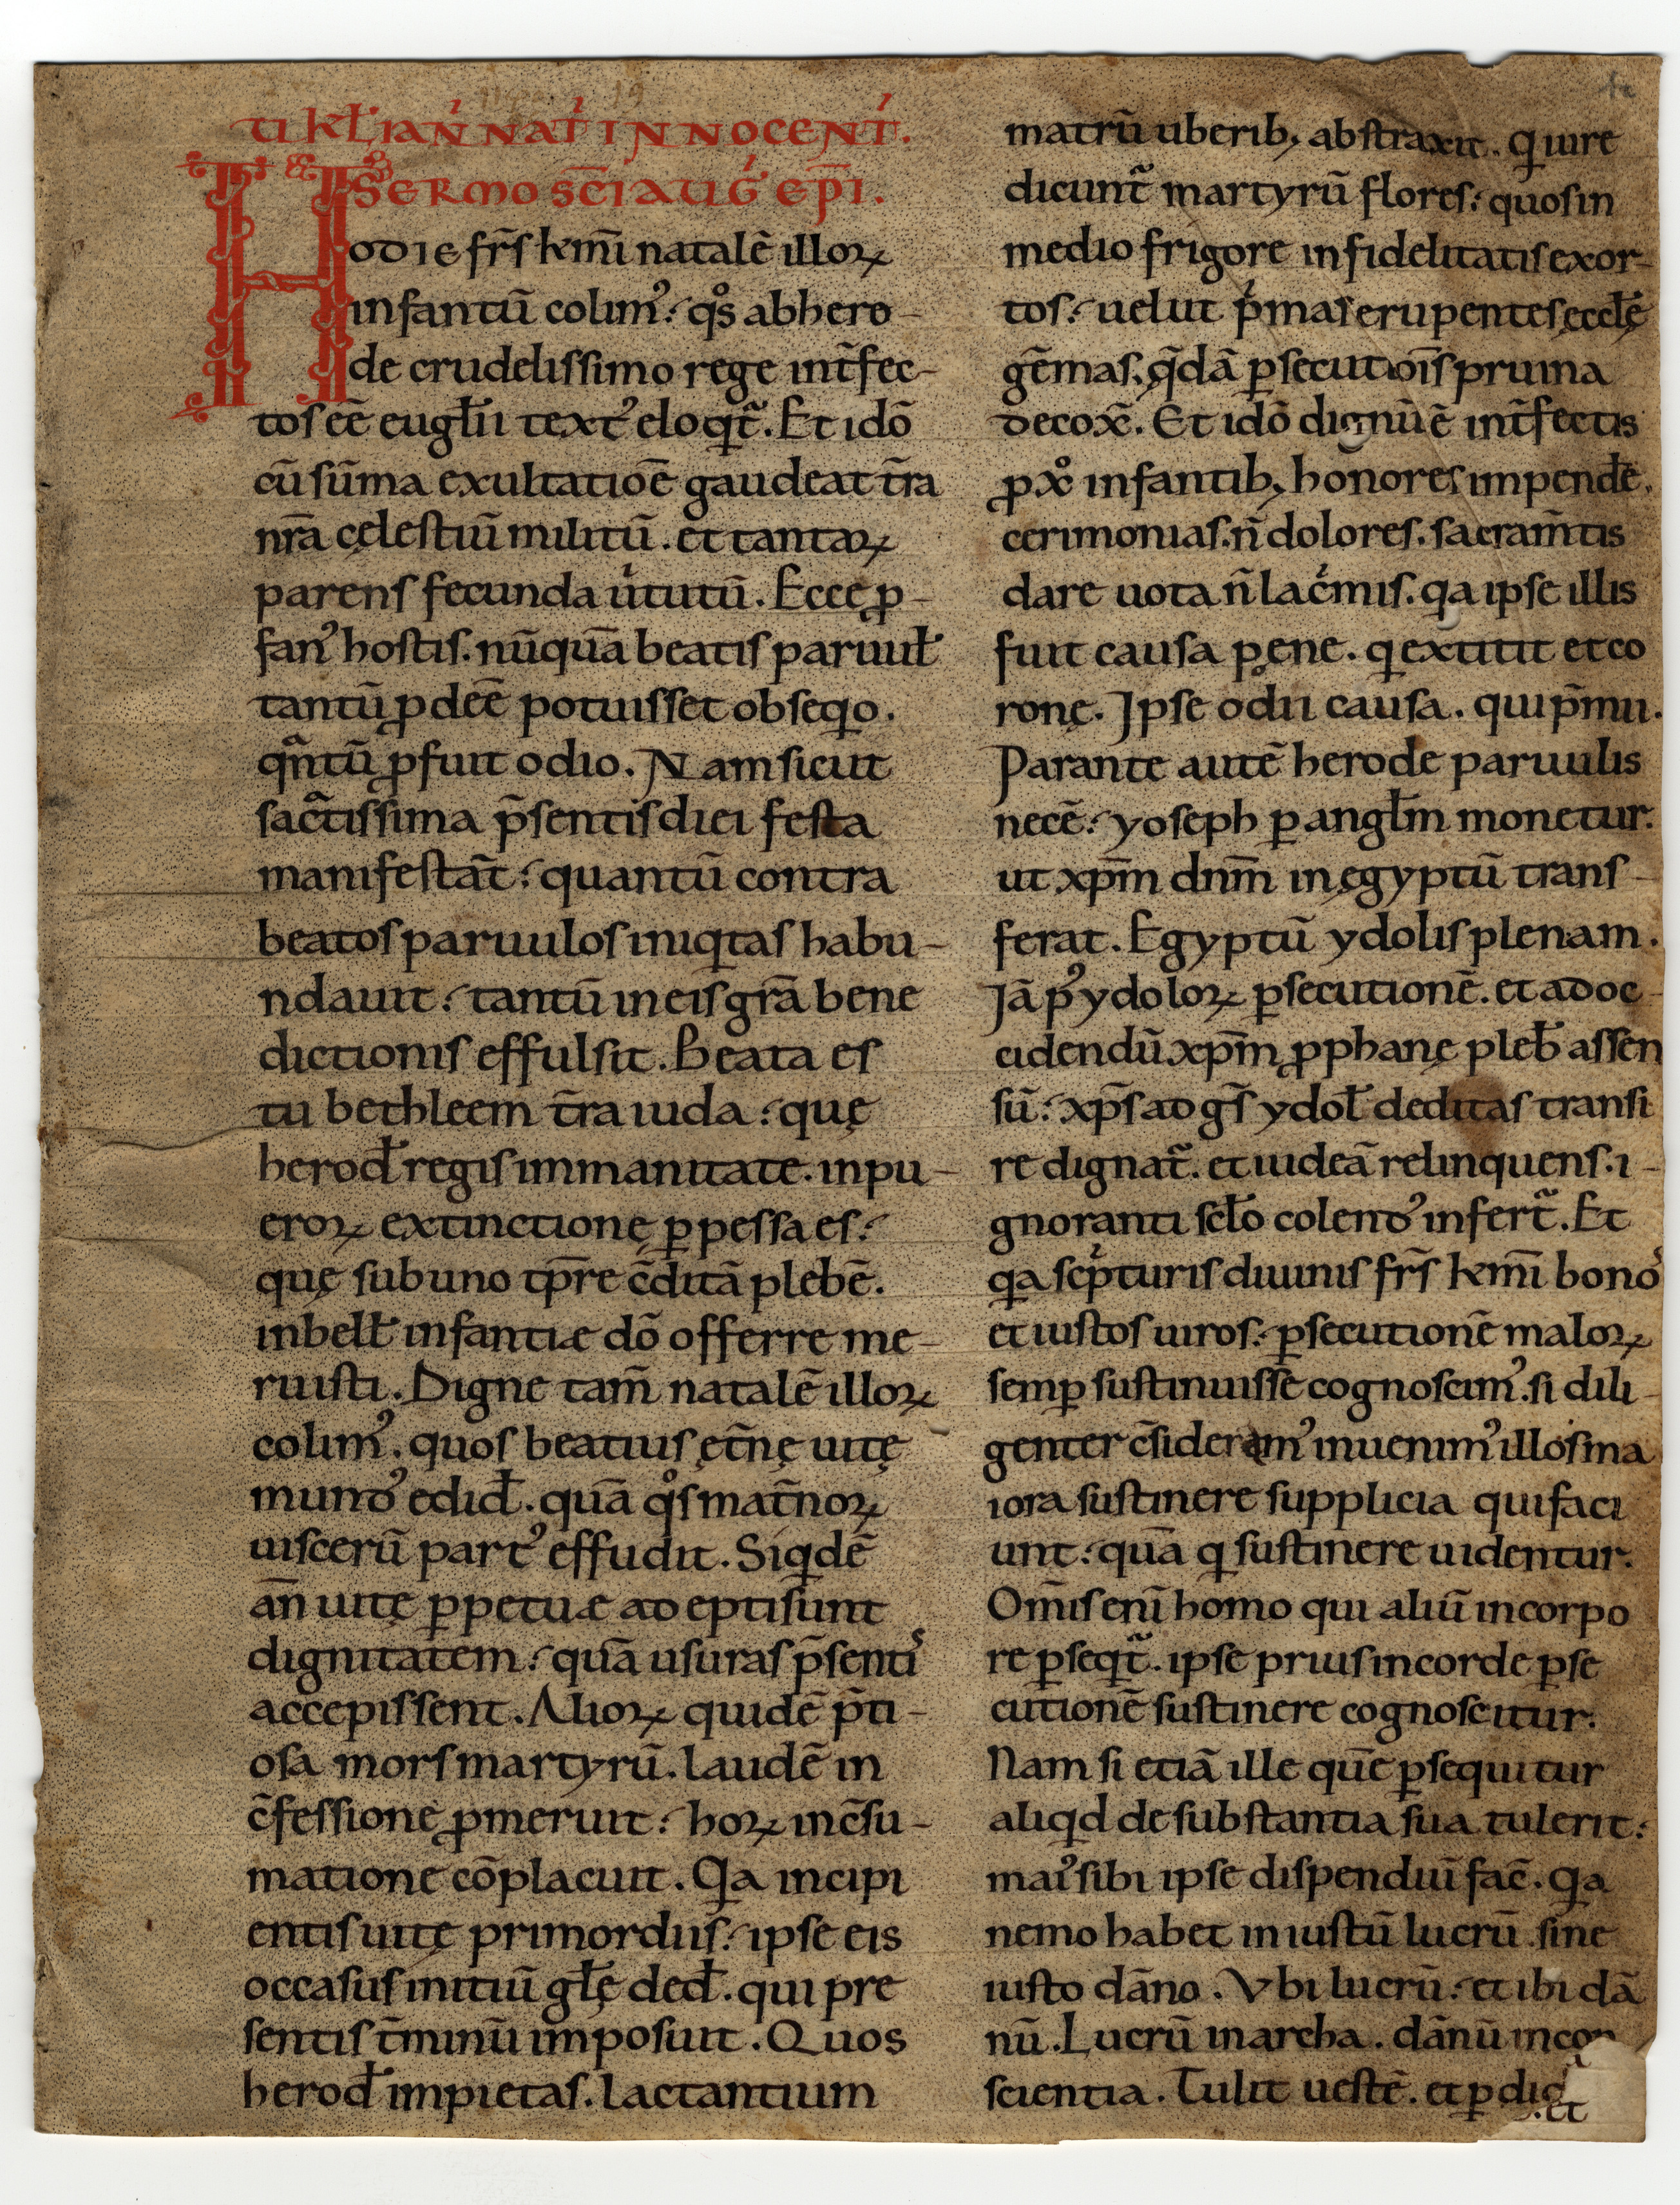 ỦI KL̄ IAN̄ NAT̄ INNOCENT̄.
SERMO SC̄I AUḠ EP̄I.
HODIE fr̄s km̄i natalē illoꝝ
infantū colimꝰ: qͦs ab hero-
de crudelissimo rege int̄fec-
tos eē eugl̄ii textꝰ eloqit̄. Et idō
cū sūma exultatioē gaudeat t̄ra
nr̄a cęlestiū militū. et tantaꝝ
parens fecunda uͥtutū. Ecce ꝓ-
fanꝰ hostis. nūquā beatis paruul̄
tantū ꝓdeē potuisset obseqio.
qᷓntū ꝓfuit odio. Nam sicut
sac̄tissima p̄sentis diei festa
manifestat̄: quantū contra
beatos paruulos iniqitas habu-
ndauit: tantū in eis grā bene
dictionis effulsit. Beata es
tu bethleem t̄ra iuda: quę
herod̄ regis immanitate. in pu-
eroꝝ extinctione ꝑpessa es:
quę sub uno tp̄re c̄ditā plebē.
inbell̄ infantiæ dō offerre me-
ruisti. Digne tam̄ natalē illoꝝ
colimꝰ. quos beatius ęt̄nę uitę
mundꝰ edid̄. quā qͦs mat̄noꝝ
uiscerū partꝰ effudit. Siqidē
an̄ uitę ꝑpetuæ adepti sunt
dignitatem: quā usuras p̄sentiˢ
accepissent. Alioꝝ quidē p̄ti-
osa mors martyrū. laudē in
c̄fessione ꝓmeruit: hoꝝ in c̄su-
matione cōplacuit. Qia incipi
entis uitę primordiis: ipse eis
occasus initiū gl̄ę ded̄. qui pre
sentis t̄minū imposuit. Quos
herod̄ impietas. lactantium
matrū uberibꝫ abstraxit. Qi iure
dicunt̄ martyrū flores: quos in
medio frigore infidelitatis exor-
tos: uelut pͥmas erupentes ęccl̄ę
gēmas. qᷓdā ꝑsecutiōis pruina
decox̄. Et idō dignū ē int̄fectis
ꝓ xͦ infantibꝫ honores impendē.
cerimonias. n̄ dolores. sacram̄tis
dare uota n̄ lacͥmis. qia ipse illis
fuit causa pęne. qi extitit et co
ronę. Ipse odii causa. qui p̄mii.
Parante autē herode paruulis
necē: yoseph ꝑ angl̄m monetur.
ut xp̄m dnm̄ in ęgyptū trans-
ferat. Egyptū ydolis plenam.
Iā pꝰ ydoloꝝ ꝑsecutionē. et ad oc-
cidendū xp̄m ꝓphanę pleb̄ assen
sū: xp̄s ad gs̄ ydol̄ deditas transi
re dignat̄. et iudeā relinquens. i-
gnoranti scl̄o colendꝰ infert̄. Et
qia scͥpturis diuinis fr̄s km̄i bonoˢ
et iustos uiros: ꝑsecutionē maloꝝ
semꝑ sustinuissē cognoscimꝰ. si dili-
genter c̄sideramꝰ inuenimꝰ illos ma
iora sustinere supplicia qui faci
unt: quā qi sustinere uidentur.
Om̄is enī homo qui aliū in corpo
re ꝑseqit̄. ipse prius in corde ꝑse
cutionē sustinere cognoscitur.
Nam si etiā ille quē ꝑsequitur
aliqid de substantia sua tulerit:
maiꝰ sibi ipse dispendiū fac̄. Qia
nemo habet iniustū lucrū. sine
iusto dāno. Vbi lucrū: et ibi dā
nū. Lucrū in archa. dānū in con
scientia. Tulit uestē. et ꝑdid
. et